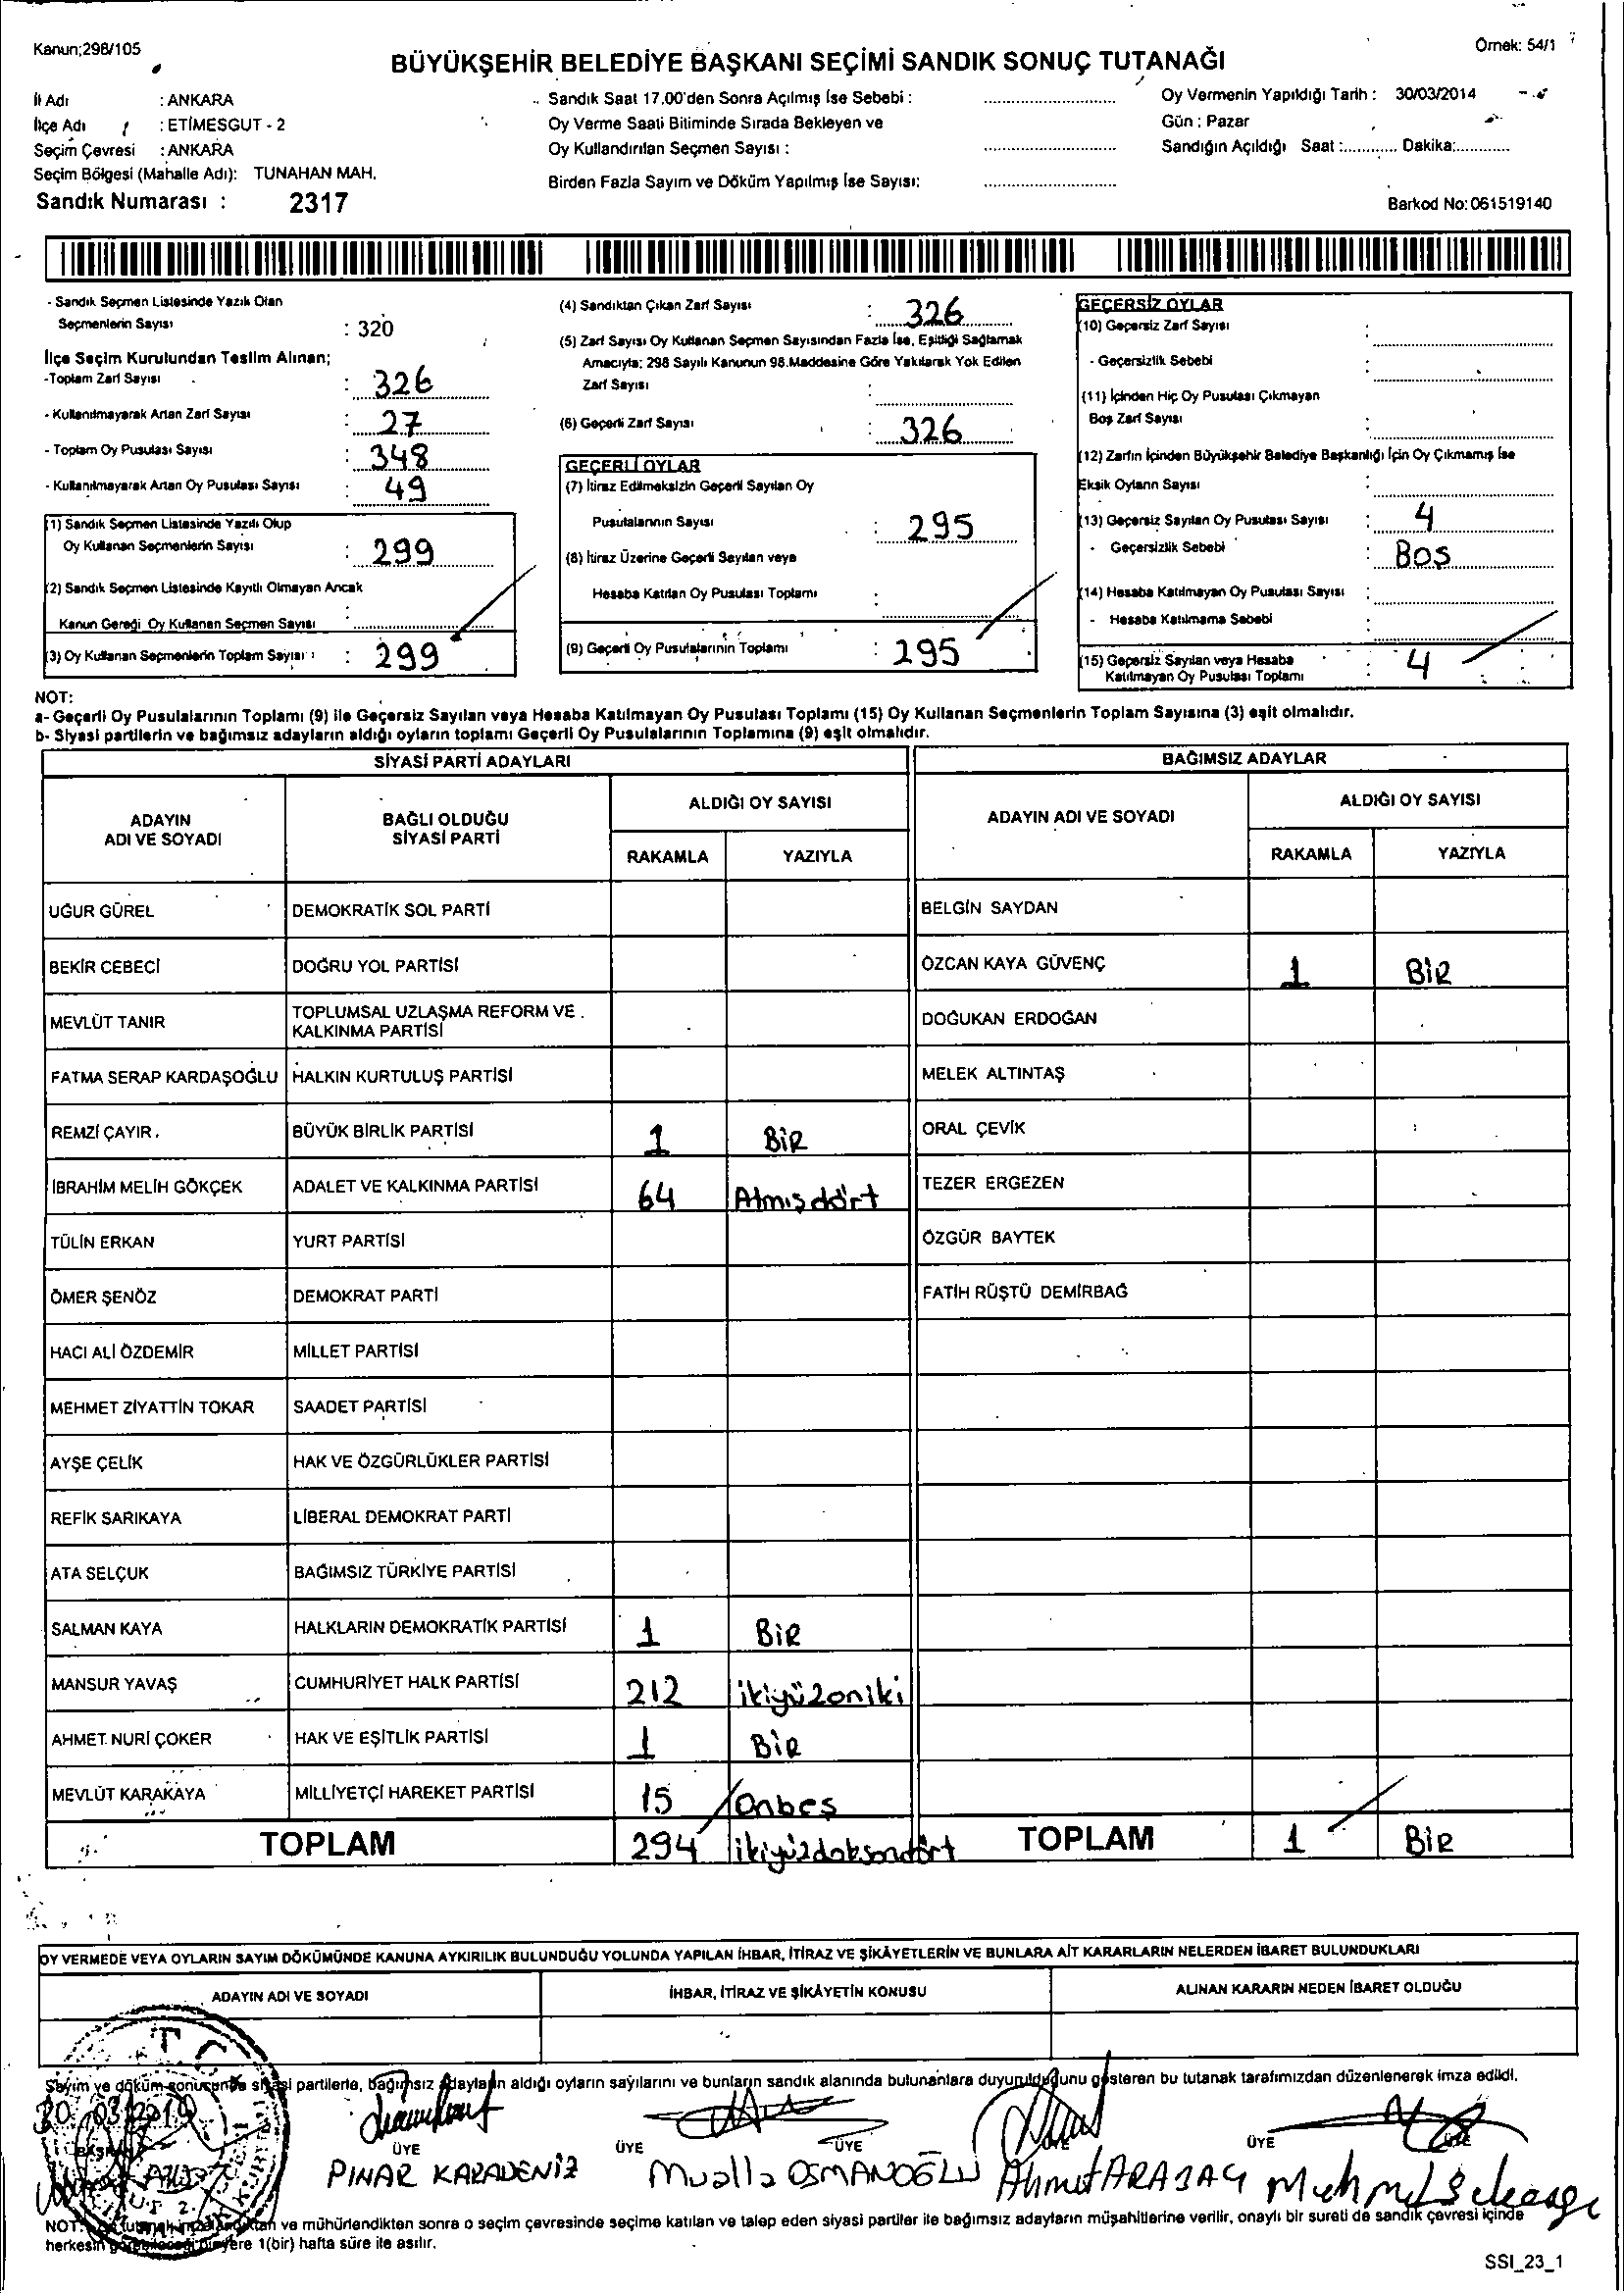 Kanun;298/105
Örnek: 54/1
BÜYÜKŞEHİR BELEDİYE BAŞKANI SEÇİMİ SANDIK SONUÇ TUTANAĞI
İl Adı : ANKARA
İlçe Adı : ETİMESGUT - 2
Seçim Çevresi : ANKARA
Seçim Bölgesi (Mahalle Adı): TUNAHAN MAH.
Sandık Numarası : 2317
Sandık Saat 17.00'den Sonra Açılmış İse Sebebi :
Oy Verme Saati Bitiminde Sırada Bekleyen ve
Oy Kullandırılan Seçmen Sayısı :
Birden Fazla Sayım ve Döküm Yapılmış İse Sayısı:
Oy Vermenin Yapıldığı Tarih : 30/03/2014
Gün : Pazar
Sandığın Açıldığı Saat :............ Dakika:............
Barkod No: 061519140
- Sandık Seçmen Listesinde Yazılı Olan
Seçmenlerin Sayısı : 320
İlçe Seçim Kurulundan Teslim Alınan;
-Toplam Zarf Sayısı : 326
- Kullanılmayarak Artan Zarf Sayısı : 27
- Toplam Oy Pusulası Sayısı : 348
- Kullanılmayarak Artan Oy Pusulası Sayısı : 49
(1) Sandık Seçmen Listesinde Yazılı Olup
Oy Kullanan Seçmenlerin Sayısı : 299
(2) Sandık Seçmen Listesinde Kayıtlı Olmayan Ancak
Kanun Gereği Oy Kullanan Seçmen Sayısı :
(3) Oy Kullanan Seçmenlerin Toplam Sayısı : 299
(4) Sandıktan Çıkan Zarf Sayısı : 326
(5) Zarf Sayısı Oy Kullanan Seçmen Sayısından Fazla İse, Eşitliği Sağlamak
Amacıyla; 298 Sayılı Kanunun 98.Maddesine Göre Yakılarak Yok Edilen
Zarf Sayısı :
(6) Geçerli Zarf Sayısı : 326
GEÇERLİ OYLAR
(7) İtiraz Edilmeksizin Geçerli Sayılan Oy
Pusulalarının Sayısı : 295
(8) İtiraz Üzerine Geçerli Sayılan veya
Hesaba Katılan Oy Pusulası Toplamı :
(9) Geçerli Oy Pusulalarının Toplamı : 295
GEÇERSİZ OYLAR
(10) Geçersiz Zarf Sayısı :
- Geçersizlik Sebebi :
(11) İçinden Hiç Oy Pusulası Çıkmayan
Boş Zarf Sayısı :
(12) Zarfın İçinden Büyükşehir Belediye Başkanlığı İçin Oy Çıkmamış İse
Eksik Oyların Sayısı :
(13) Geçersiz Sayılan Oy Pusulası Sayısı : 4
- Geçersizlik Sebebi : BOŞ
(14) Hesaba Katılmayan Oy Pusulası Sayısı :
- Hesaba Katılmama Sebebi :
(15) Geçersiz Sayılan veya Hesaba
Katılmayan Oy Pusulası Toplamı : 4
NOT:
a- Geçerli Oy Pusulalarının Toplamı (9) ile Geçersiz Sayılan veya Hesaba Katılmayan Oy Pusulası Toplamı (15) Oy Kullanan Seçmenlerin Toplam Sayısına (3) eşit olmalıdır.
b- Siyasi partilerin ve bağımsız adayların aldığı oyların toplamı Geçerli Oy Pusulalarının Toplamına (9) eşit olmalıdır.
SİYASİ PARTİ ADAYLARI
BAĞIMSIZ ADAYLAR
ADAYIN
ADI VE SOYADI
BAĞLI OLDUĞU
SİYASİ PARTİ
ALDIĞI OY SAYISI
RAKAMLA YAZIYLA
ADAYIN ADI VE SOYADI
ALDIĞI OY SAYISI
RAKAMLA YAZIYLA
UĞUR GÜREL DEMOKRATİK SOL PARTİ BELGİN SAYDAN
BEKİR CEBECİ DOĞRU YOL PARTİSİ ÖZCAN KAYA GÜVENÇ 1 BİR
MEVLÜT TANIR TOPLUMSAL UZLAŞMA REFORM VE
KALKINMA PARTİSİ DOĞUKAN ERDOĞAN
FATMA SERAP KARDAŞOĞLU HALKIN KURTULUŞ PARTİSİ MELEK ALTINTAŞ
REMZİ ÇAYIR. BÜYÜK BİRLİK PARTİSİ 1 BİR ORAL ÇEVİK
İBRAHİM MELİH GÖKÇEK ADALET VE KALKINMA PARTİSİ 64 Atmışdört TEZER ERGEZEN
TÜLİN ERKAN YURT PARTİSİ ÖZGÜR BAYTEK
ÖMER ŞENÖZ DEMOKRAT PARTİ FATİH RÜŞTÜ DEMİRBAĞ
HACI ALİ ÖZDEMİR MİLLET PARTİSİ
MEHMET ZİYATTİN TOKAR SAADET PARTİSİ
AYŞE ÇELİK HAK VE ÖZGÜRLÜKLER PARTİSİ
REFİK SARIKAYA LİBERAL DEMOKRAT PARTİ
ATA SELÇUK BAĞIMSIZ TÜRKİYE PARTİSİ
SALMAN KAYA HALKLARIN DEMOKRATİK PARTİSİ 1 BİR
MANSUR YAVAŞ CUMHURİYET HALK PARTİSİ 212 ikiyüzoniki
AHMET NURİ ÇOKER HAK VE EŞİTLİK PARTİSİ 1 BİR
MEVLÜT KARAKAYA MİLLİYETÇİ HAREKET PARTİSİ 15 Onbeş
TOPLAM 294 ikiyüzdoksandört TOPLAM 1 BİR
OY VERMEDE VEYA OYLARIN SAYIM DÖKÜMÜNDE KANUNA AYKIRILIK BULUNDUĞU YOLUNDA YAPILAN İHBAR, İTİRAZ VE ŞİKÂYETLERİN VE BUNLARA AİT KARARLARIN NELERDEN İBARET BULUNDUKLARI
ADAYIN ADI VE SOYADI İHBAR, İTİRAZ VE ŞİKÂYETİN KONUSU ALINAN KARARIN NEDEN İBARET OLDUĞU
Sayım ve döküm sonucunda siyasi partilerle, bağımsız adayların aldığı oyların sayılarını ve bunların sandık alanında bulunanlara duyurulduğunu gösteren bu tutanak tarafımızdan düzenlenerek imza edildi.
ÜYE ÜYE ÜYE ÜYE
PINAR KARADENİZ Mualla OSMANOĞLU Ahmet
NOT: ve mühürlendikten sonra o seçim çevresinde seçime katılan ve talep eden siyasi partiler ile bağımsız adayların müşahitlerine verilir, onaylı bir sureti de sandık çevresi içinde
herkesin 1(bir) hafta süre ile asılır.
SSI_23_1